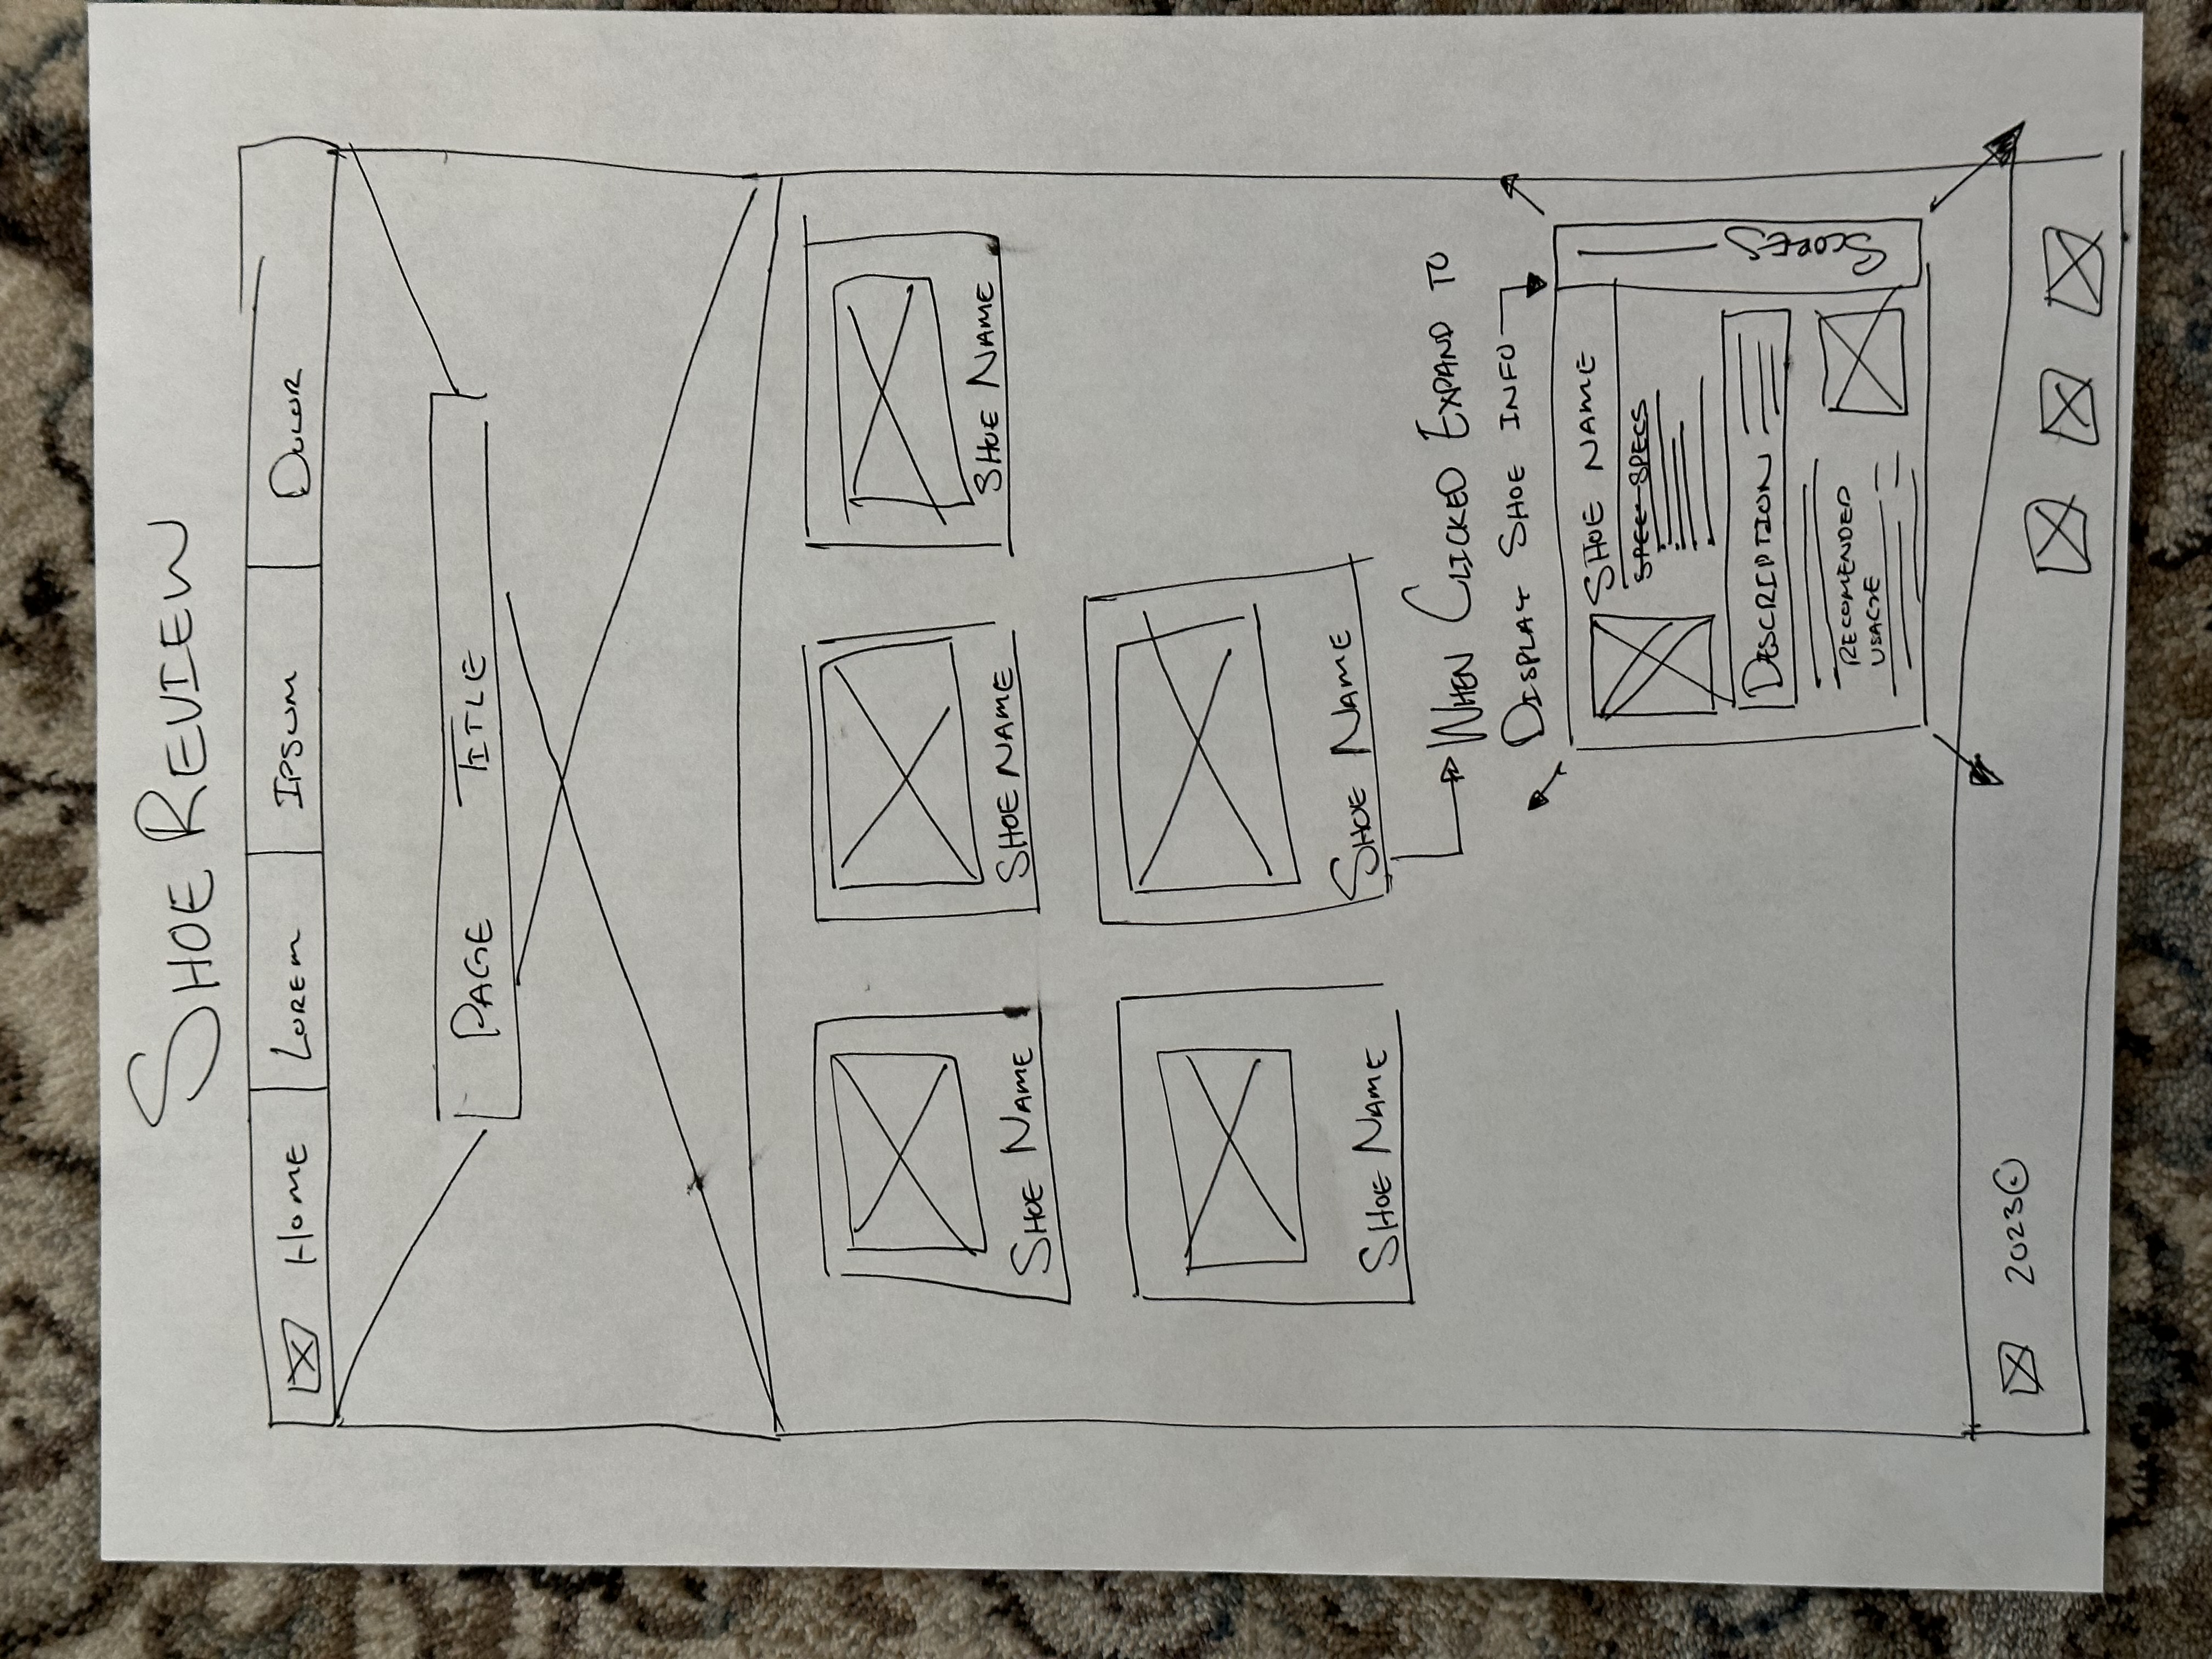 SHOE REVIEW
HOME LOREM IPSUM DOLOR
PAGE TITLE
SHOE NAME SHOE NAME SHOE NAME
SHOE NAME SHOE NAME
WHEN CLICKED EXPAND TO
DISPLAY SHOE INFO
SHOE NAME
SPEC SPECS
DESCRIPTION
RECOMENDED
USAGE
SCORES
2023©